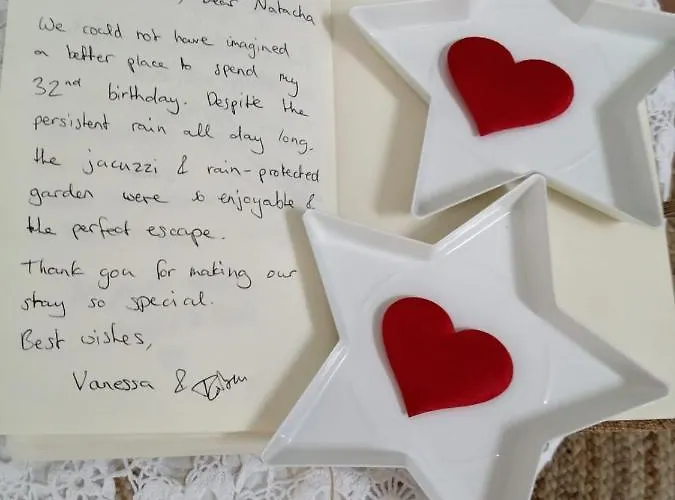 Dear Natacha
We could not have imagined
a better place to spend my
32nd birthday. Despite the
persistent rain all day long.
the jacuzzi & rain-protected
garden were so enjoyable &
the perfect escape.
Thank you for making our
stay so special.
Best wishes,
Vanessa &